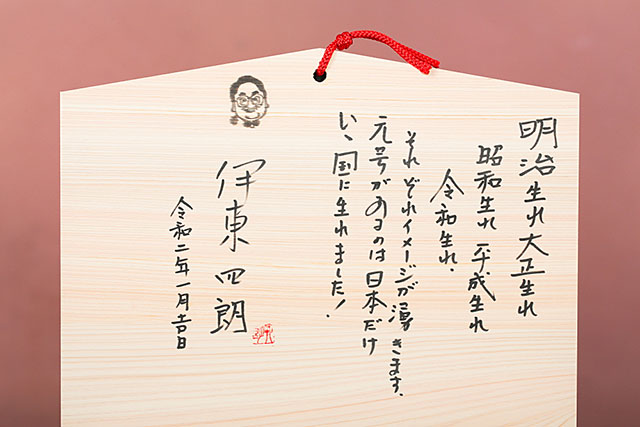 明治生れ大正生れ
昭和生れ 平成生れ
令和生れ.
それぞれイメージが湧きます.
元号があるのは日本だけ
いい国に生れました!
伊東四朗
令和二年一月吉日